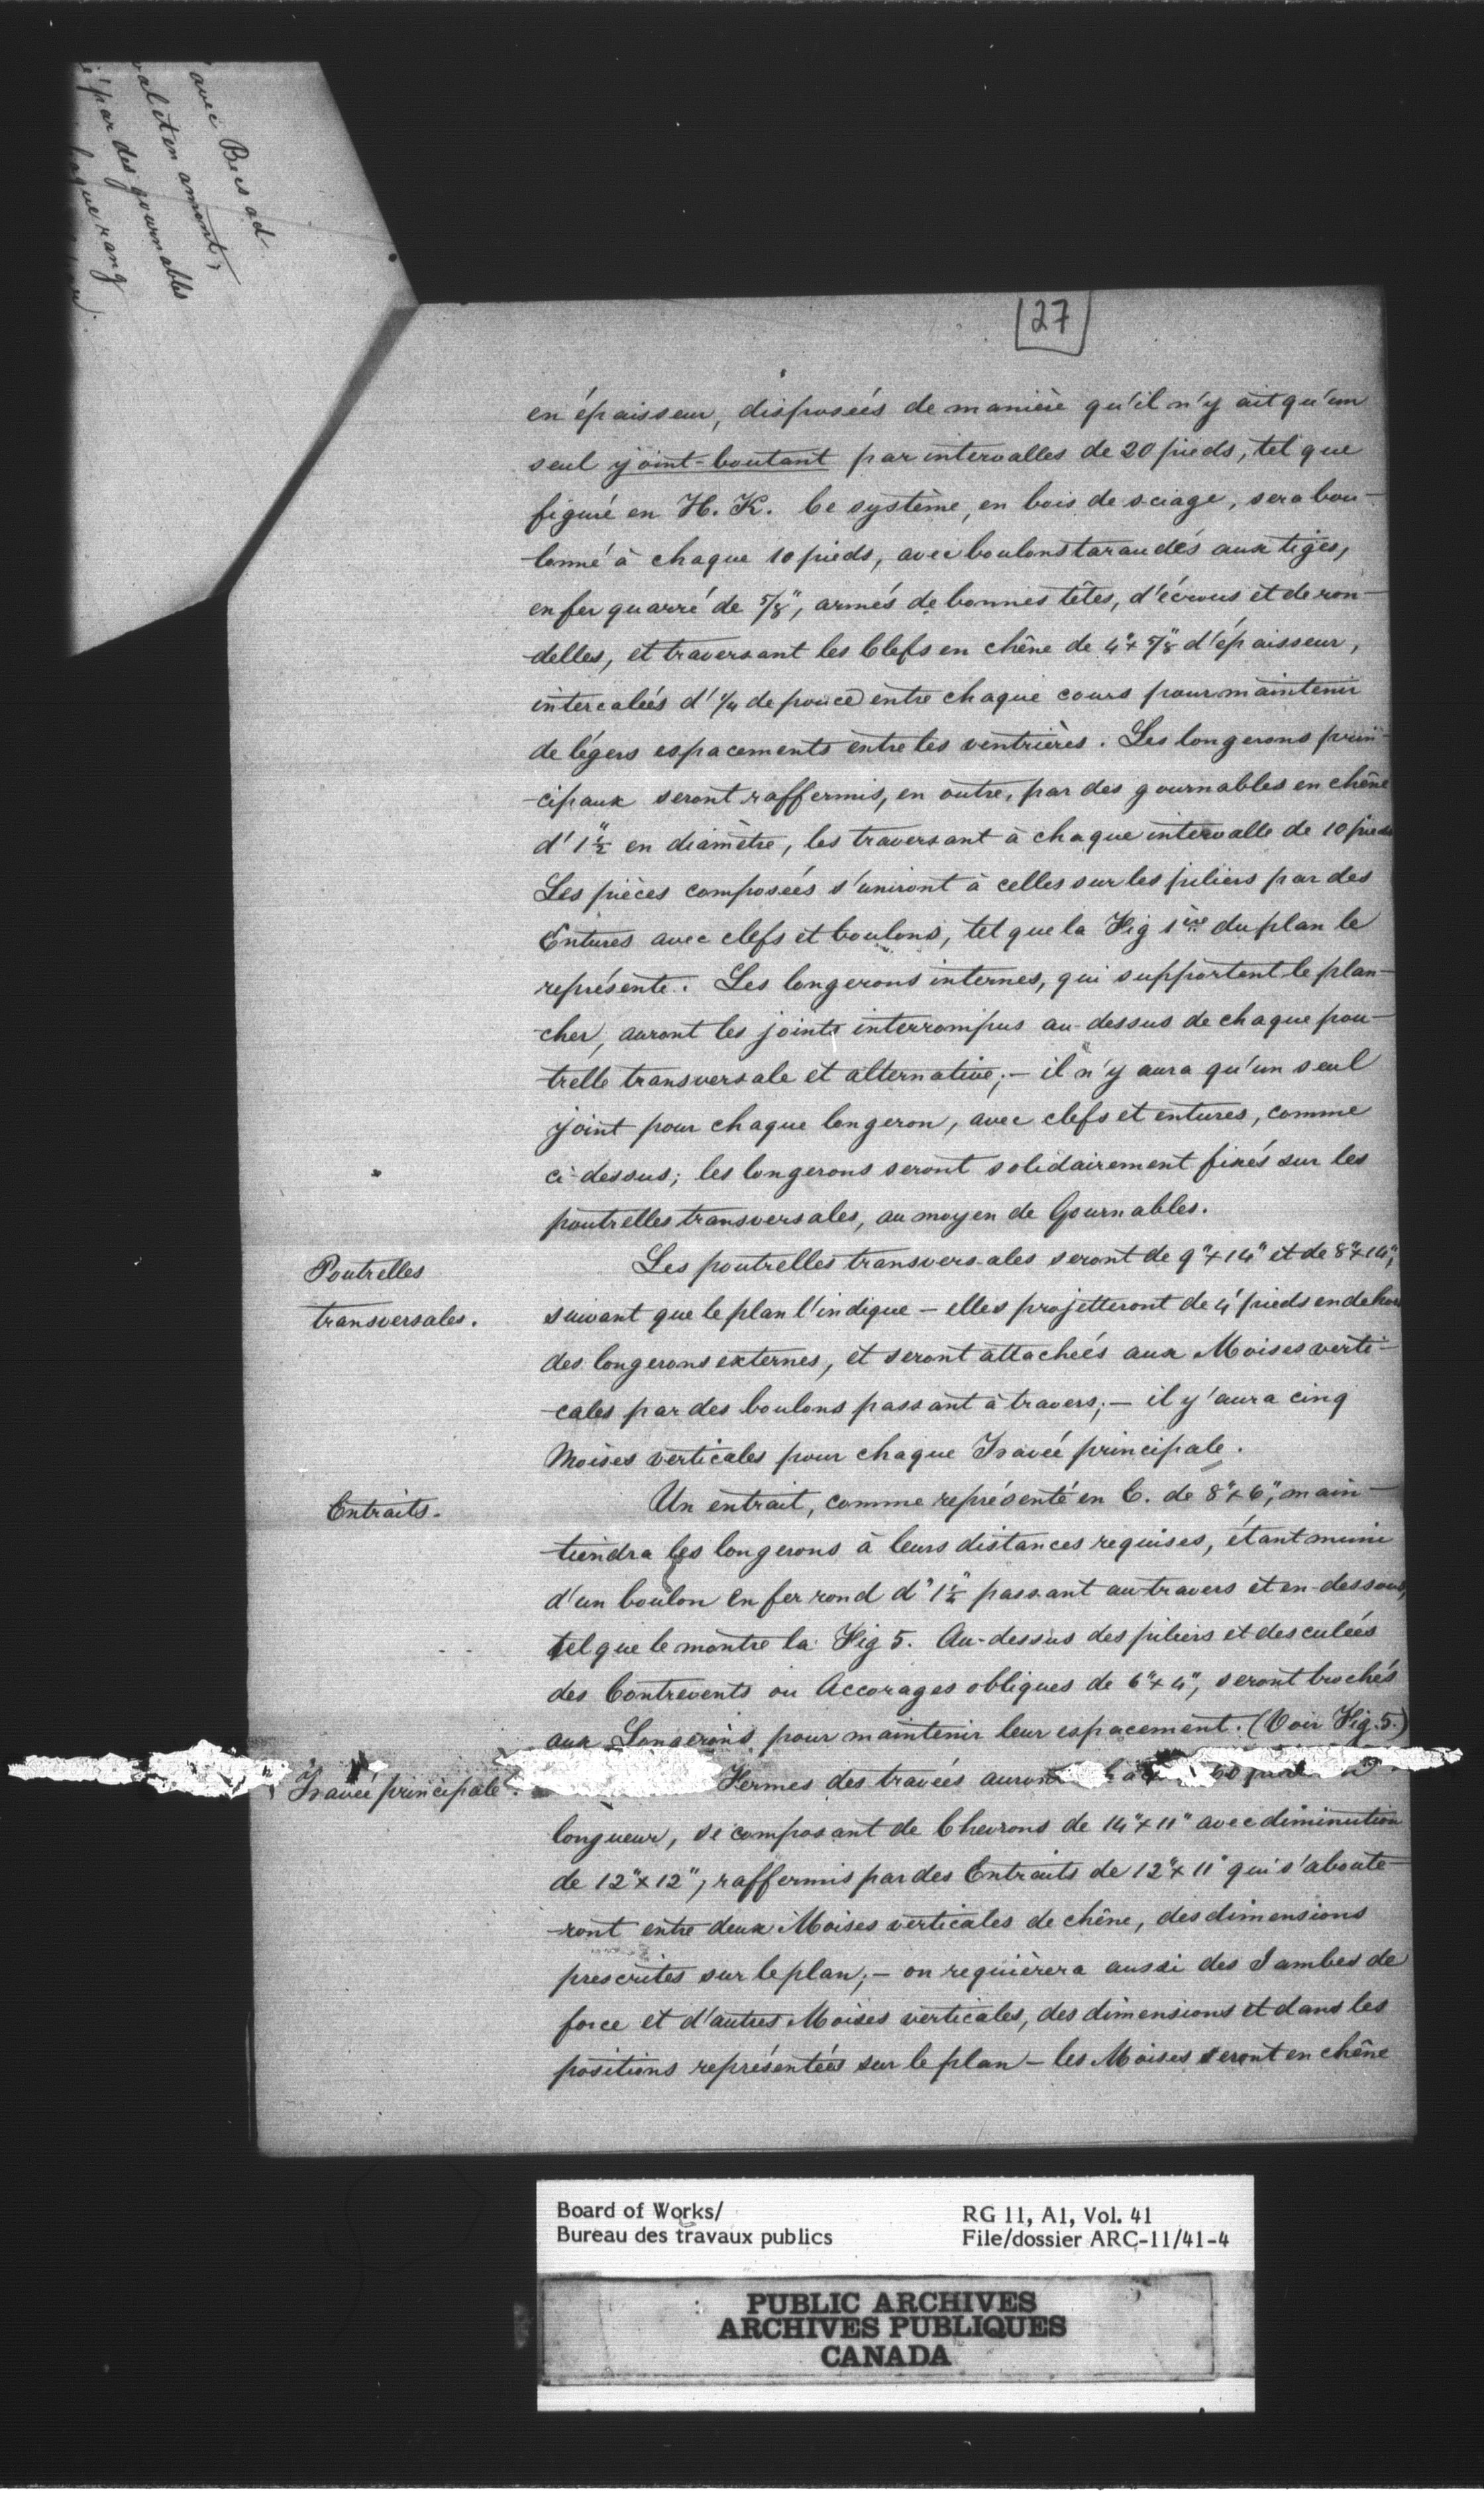 avec Becs ad
val et en amont,
é par des gournables
haque rang
27
en épaisseur, disposées de manière qu'il n'y ait qu'un
seul joint-boutant par intervalles de 20 pieds, tel que
figuré en H. K. Ce système, en bois de sciage, sera bou-
lonné à chaque 10 pieds, avec boulons taraudés aux tiges,
en fer quarré de 5/8", armés de bonnes têtes, d'écrous et de ron-
delles, et traversant les Clefs en chêne de 4" x 5/8" d'épaisseur,
intercalées d'1/4 de pouce entre chaque cours pour maintenir
de légers espacements entre les ventrières. Les longerons prin-
-cipaux seront raffermis, en outre, par des gournables en chêne
d'1 1/2" en diamètre, les traversant à chaque intervalle de 10 pieds
Les pièces composées s'uniront à celles sur les piliers par des
Entures avec clefs et boulons, tel que la Fig 1ère du plan le
représente. Les longerons internes, qui supportent le plan-
-cher, auront les joints interrompus au-dessus de chaque pou-
trelle transversale et alternative; - il n'y aura qu'un seul
joint pour chaque longeron, avec clefs et entures, comme
ci-dessus; les longerons seront solidairement fixés sur les
poutrelles transversales, au moyen de Gournables.
Poutrelles
transversales.
Les poutrelles transversales seront de 9" x 14" et de 8" x 14",
suivant que le plan l'indique - elles projetteront de 4 pieds en dehors
des longerons externes, et seront attachées aux Moises verti-
-cales par des boulons passant à travers; - il y'aura cinq
Moises verticales pour chaque Travée principale.
Entraits.
Un entrait, comme représenté en C. de 8" x 6", main-
tiendra les longerons à leurs distances requises, étant muni
d'un boulon en fer rond d'1 1/4" passant au travers et en-dessous,
tel que le montre la Fig 5. Au-dessus des piliers et des culées
des Contrevents ou Accorages obliques de 6" x 4", seront brochés
aux Longerons pour maintenir leur espacement. (Voir Fig. 5.)
Travée principale.
Fermes des travées auront 60 pieds
longueur, se composant de Chevrons de 14" x 11" avec diminution
de 12" x 12", raffermis par des Entraits de 12" x 11" qui s'aboute-
-ront entre deux Moises verticales de chêne, des dimensions
prescrites sur le plan; - on requièrera aussi des Jambes de
force et d'autres Moises verticales, des dimensions et dans les
positions représentées sur le plan - les Moises seront en chêne
Board of Works/
Bureau des travaux publics
RG 11, A1, Vol. 41
File/dossier ARC-11/41-4
PUBLIC ARCHIVES
ARCHIVES PUBLIQUES
CANADA